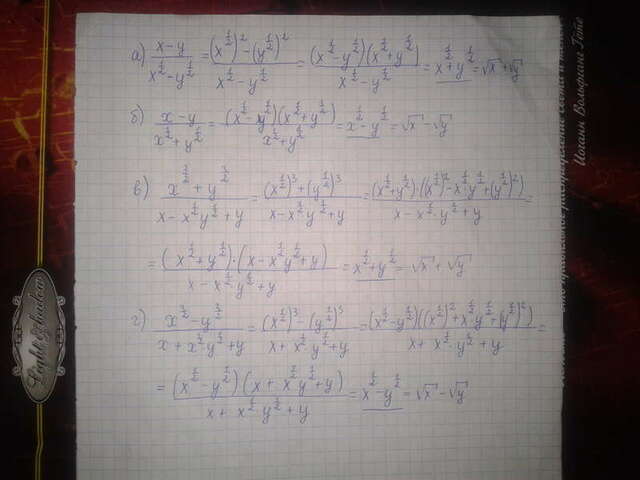 а) (x-y)/(x^(1/2)-y^(1/2)) = ((x^(1/2))^2-(y^(1/2))^2)/(x^(1/2)-y^(1/2)) = ((x^(1/2)-y^(1/2))(x^(1/2)+y^(1/2)))/(x^(1/2)-y^(1/2)) = x^(1/2)+y^(1/2) = √x+√y
б) (x-y)/(x^(1/2)+y^(1/2)) = ((x^(1/2)-y^(1/2))(x^(1/2)+y^(1/2)))/(x^(1/2)+y^(1/2)) = x^(1/2)-y^(1/2) = √x-√y
в) (x^(3/2)+y^(3/2))/(x-x^(1/2)y^(1/2)+y) = ((x^(1/2))^3+(y^(1/2))^3)/(x-x^(1/2)y^(1/2)+y) = ((x^(1/2)+y^(1/2))·((x^(1/2))^2-x^(1/2)y^(1/2)+(y^(1/2))^2))/(x-x^(1/2)·y^(1/2)+y) =
= ((x^(1/2)+y^(1/2))·(x-x^(1/2)y^(1/2)+y))/(x-x^(1/2)y^(1/2)+y) = x^(1/2)+y^(1/2) = √x+√y
г) (x^(3/2)-y^(3/2))/(x+x^(1/2)y^(1/2)+y) = ((x^(1/2))^3-(y^(1/2))^3)/(x+x^(1/2)·y^(1/2)+y) = ((x^(1/2)-y^(1/2))((x^(1/2))^2+x^(1/2)y^(1/2)+(y^(1/2))^2))/(x+x^(1/2)·y^(1/2)+y) =
= ((x^(1/2)-y^(1/2))(x+x^(1/2)y^(1/2)+y))/(x+x^(1/2)·y^(1/2)+y) = x^(1/2)-y^(1/2) = √x-√y
Light & Shadow
Иоганн Вольфганг Гёте